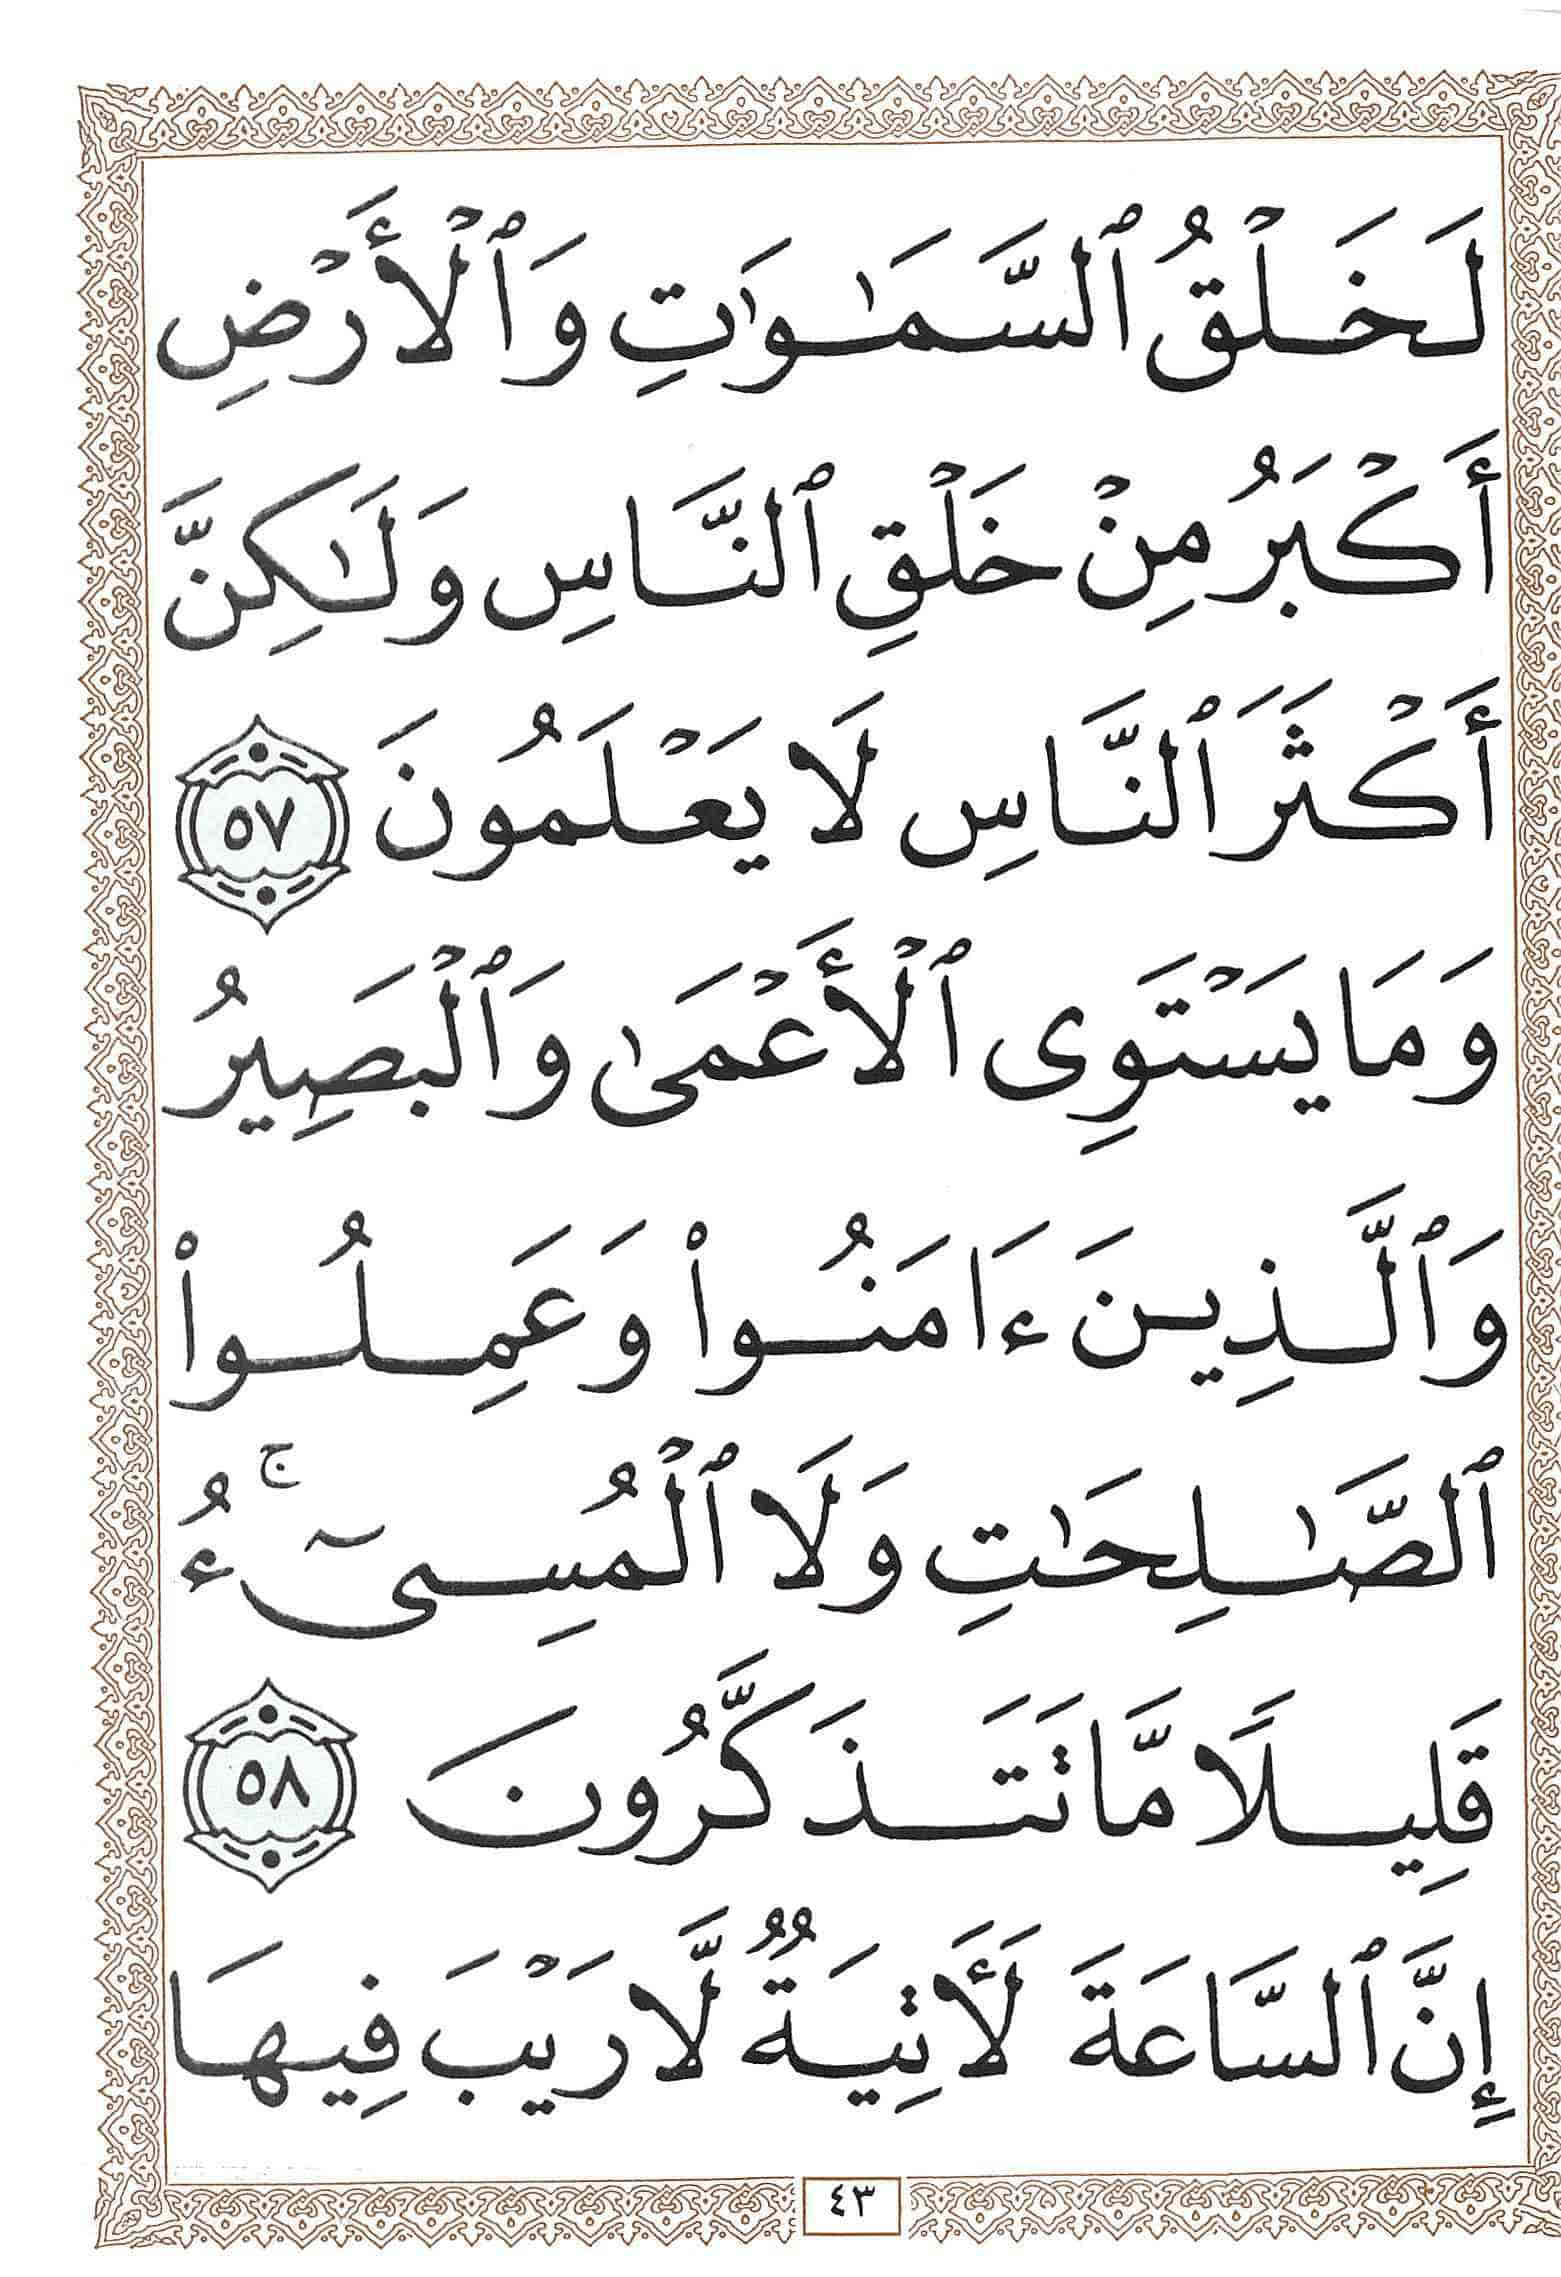 لَخَلْقُ ٱلسَّمَٰوَٰتِ وَٱلْأَرْضِ
أَكْبَرُ مِنْ خَلْقِ ٱلنَّاسِ وَلَٰكِنَّ
أَكْثَرَ ٱلنَّاسِ لَا يَعْلَمُونَ ٥٧
وَمَا يَسْتَوِى ٱلْأَعْمَىٰ وَٱلْبَصِيرُ
وَٱلَّذِينَ ءَامَنُوا۟ وَعَمِلُوا۟
ٱلصَّٰلِحَٰتِ وَلَا ٱلْمُسِىٓءُ ۚ
قَلِيلًا مَّا تَتَذَكَّرُونَ ٥٨
إِنَّ ٱلسَّاعَةَ لَأَتِيَةٌ لَّا رَيْبَ فِيهَا
٤٣